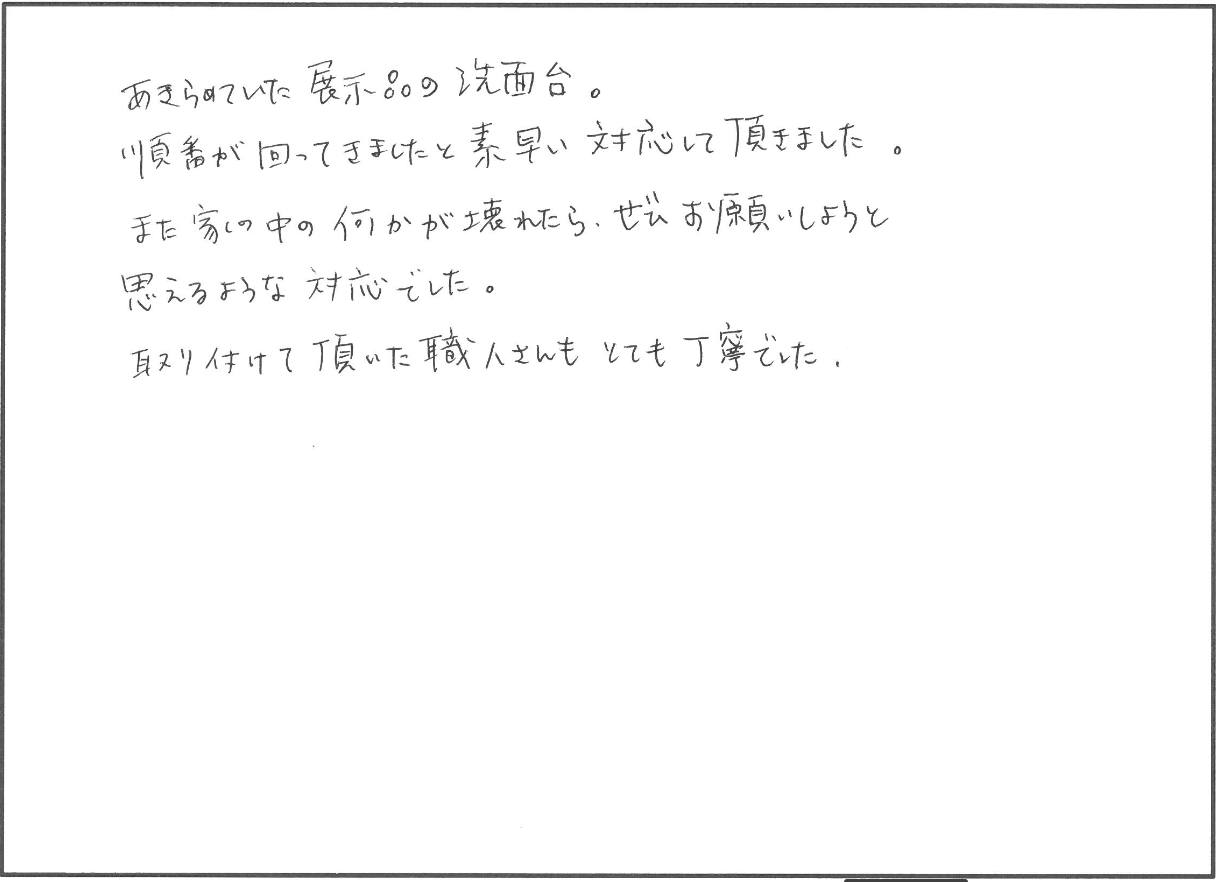 あきらめていた展示品の洗面台。
順番が回ってきましたと素早い対応して頂きました。
また家の中の何かが壊れたら、ぜひお願いしようと
思えるような対応でした。
取り付けて頂いた職人さんもとても丁寧でした.